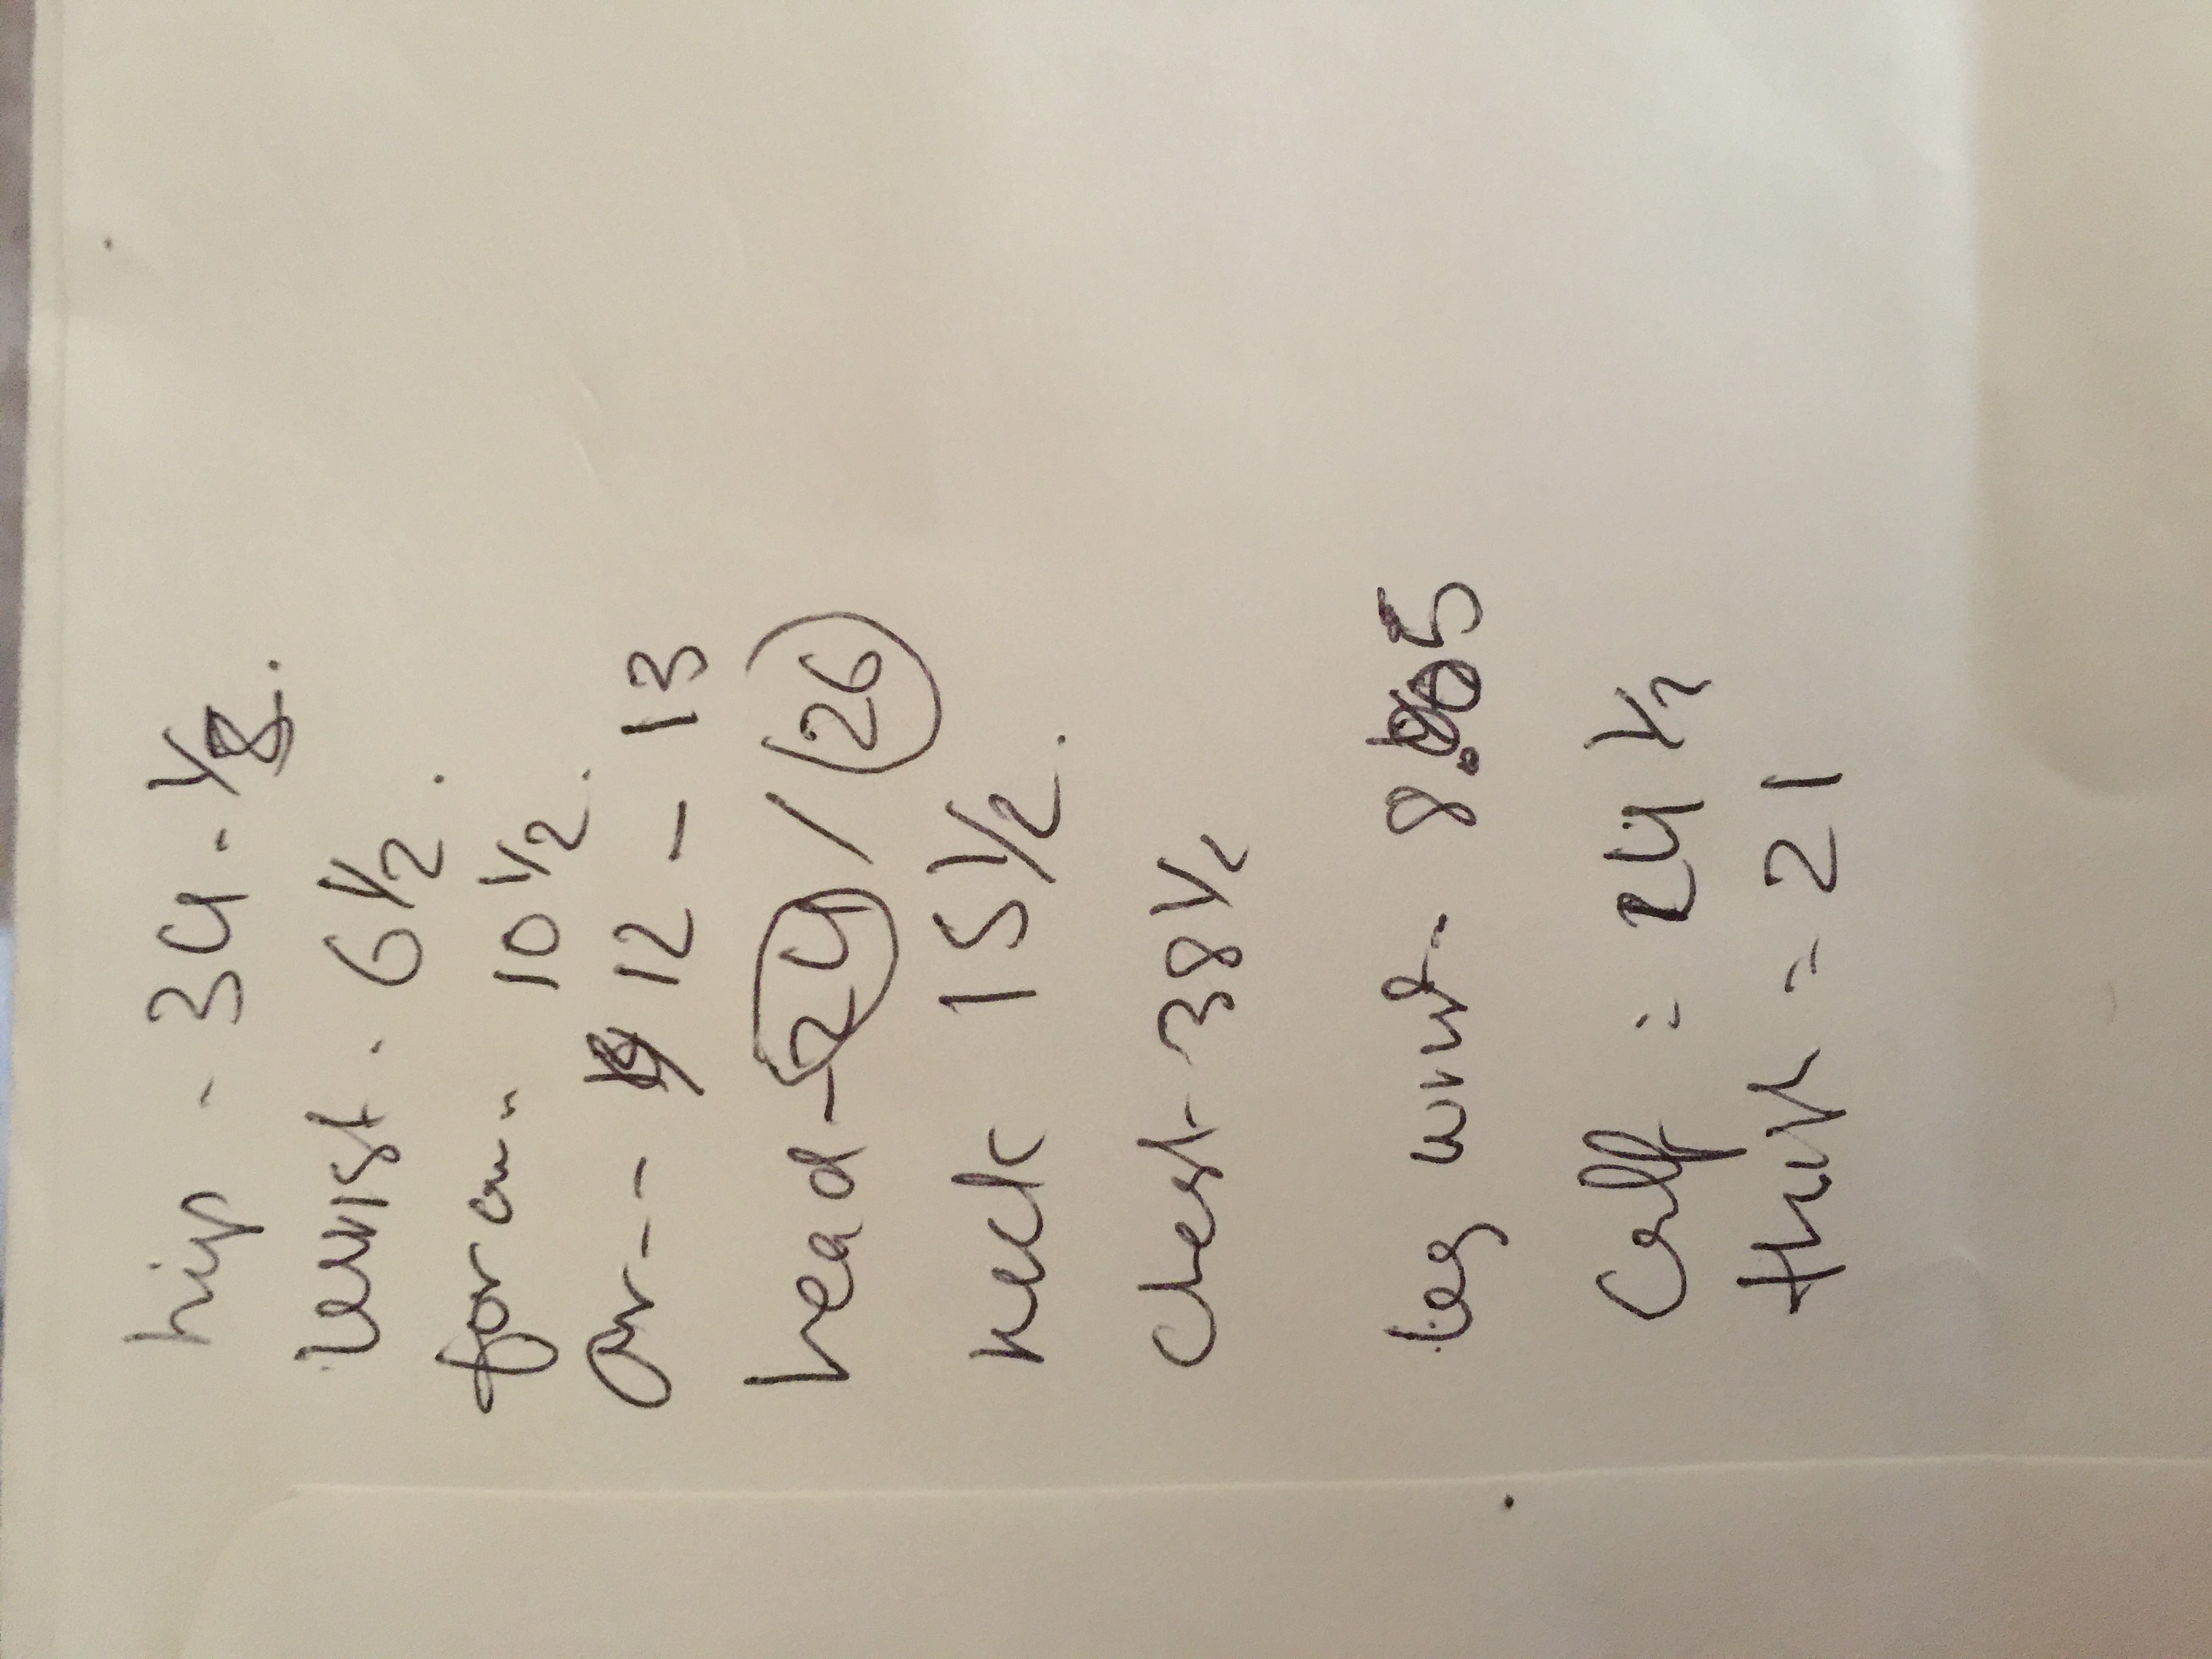 hip - 34 - 1/8.
wrist. 6 1/2.
forarm 10 1/2.
Arm -- 12 - 13
head - 24 / 26
neck 15 1/2.
Chest - 38 1/2
leg wrist - 8.5
Calf = 24 1/2
thigh = 21